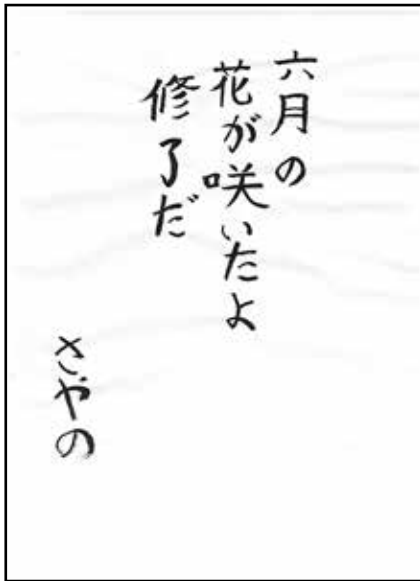 六月の
花が咲いたよ
修了だ
さやの